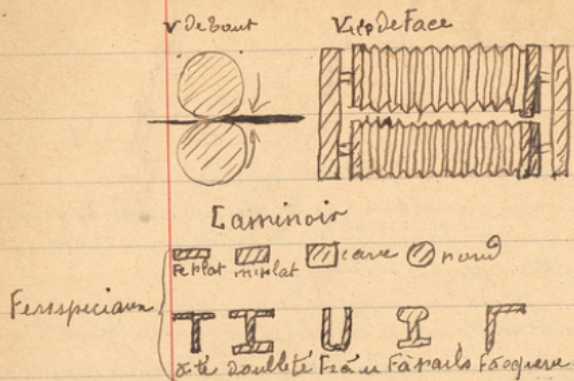 V de bout Vue de Face
Laminoir
Fe plat mi plat carré rond
Fers speciaux
à té double té F à u F à rails F à equerre